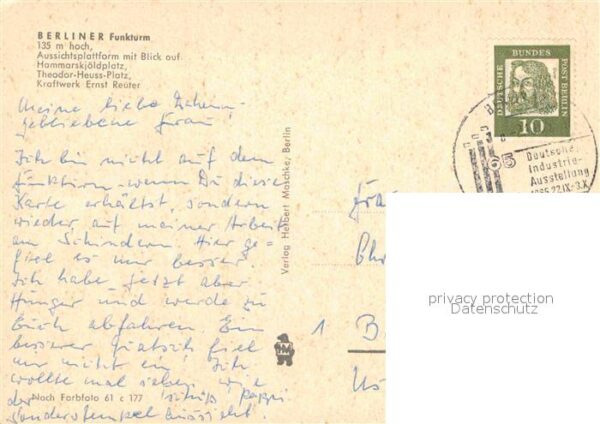 BERLINER Funkturm
135 m hoch,
Aussichtsplattform mit Blick auf
Hammarskjöldplatz,
Theodor-Heuss-Platz,
Kraftwerk Ernst Reuter
Meine liebe Daheim-
gebliebene Frau!
Ich bin nicht auf dem
Funkturm wenn Du diese
Karte erhältst, sondern
wieder auf meiner Arbeit
am Schindern. Hier ge-
fiel es mir besser.
Ich habe jetzt aber
Hunger und werde zu
Euch abfahren. Ein
besserer Quatsch fiel
mir nicht ein! Ich
wollte mal sehen, wie
der
Sonderstempel aussieht.
Nach Farbfoto 61 c 177
Verlag Herbert Maschke, Berlin
DEUTSCHE BUNDESPOST BERLIN
10
65
Deutsche
Industrie-
Ausstellung
1965 22.IX.-3.X.
Frau
1 B
privacy protection
Datenschutz